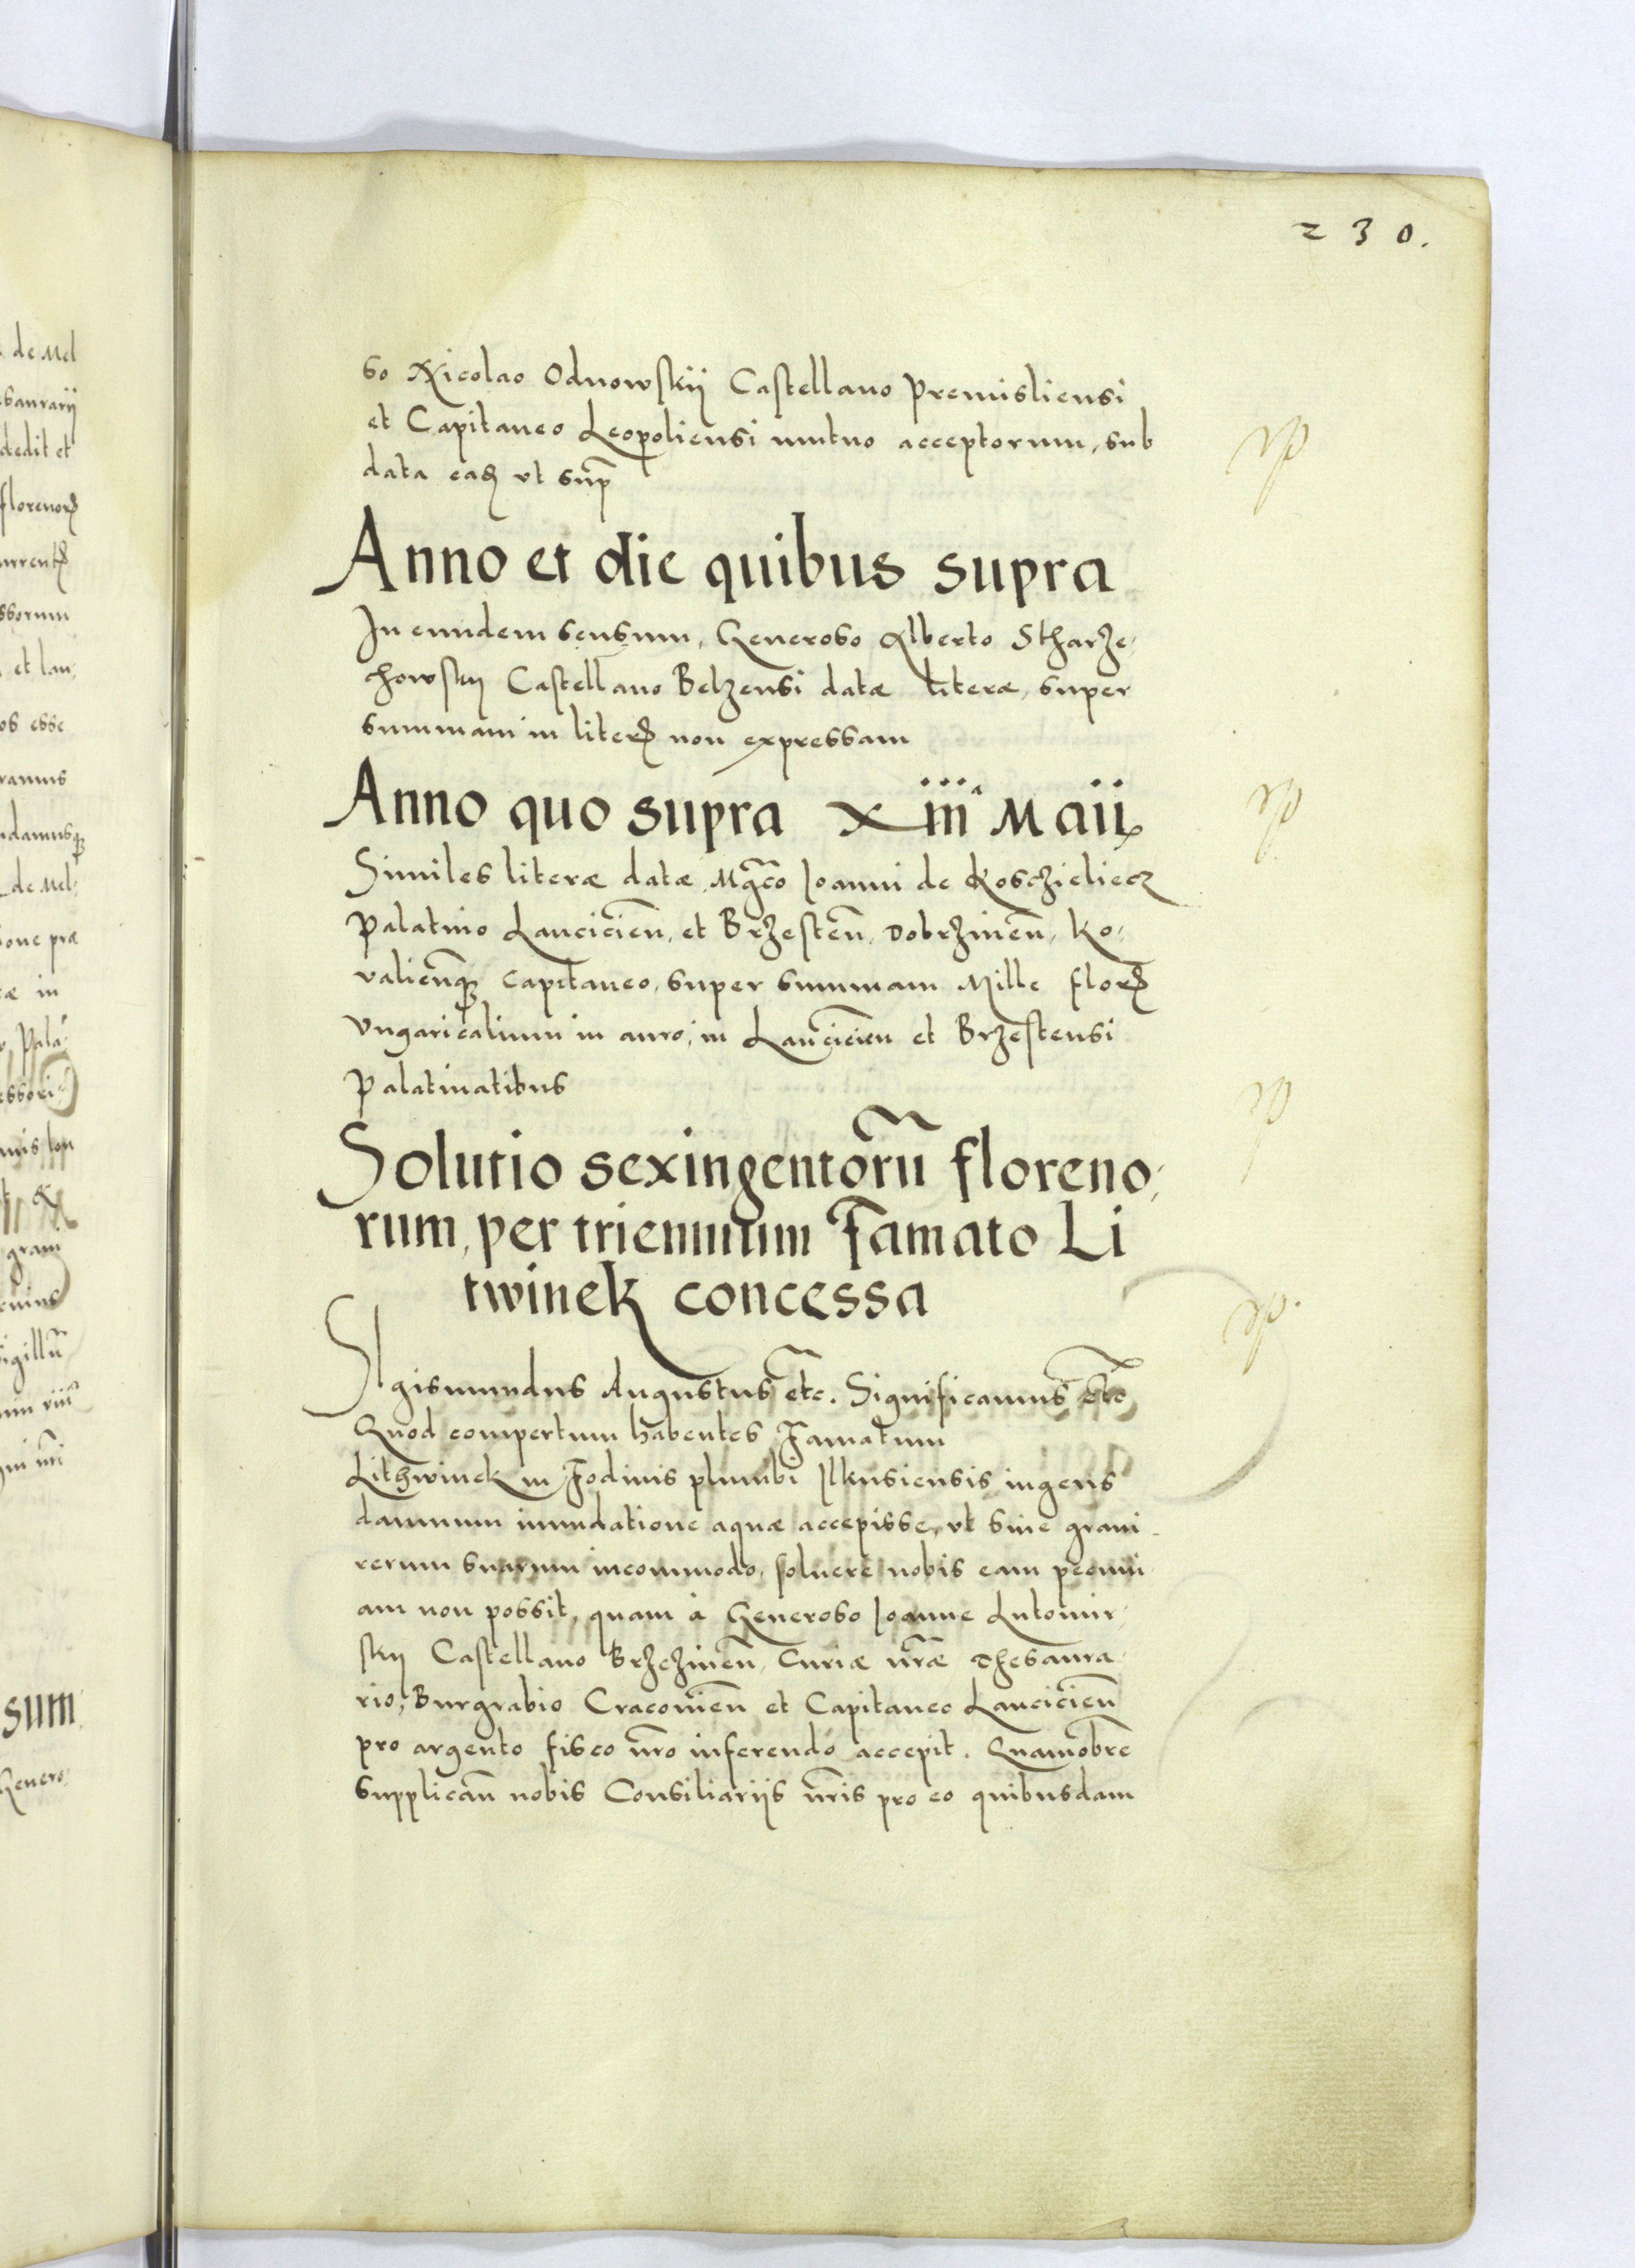 230.
so Nicolao Odnowskij Castellano Premisliensi
et Capitaneo Leopoliensi mutuo acceptorum, sub
data ut
Anno et die quibus supra
In eundem sensum, Generoso Alberto Stharze,
chowskij Castellano Belzensi datæ literæ, super
summam in non expressam
Anno quo supra xiii Maii
Similes literæ datæ Mgco Joanni de Kosczieliecz
Palatino Lancicień, et Brzesteń, Dobrzineń, Ko,
valieńqз capitaneo, super summam Mille
Ungaricalium in auro, in Lancicien et Brzestensi
Palatinatibus
Solutio sexingentorũ floreno,
rum, per triennium Famato Li
twinek concessa
SIgismundus Augustus etc. Significamus etc
Quod compertum habentes Famatum
Lithwinek in Fodinis plumbi Ilkusiensis ingens
damnum inundatione aquæ accepisse, ut sine gravi
rerum suarum incommodo, solvere nobis eam pecuni
am non possit, quam à Generoso Joanne Lutomir,
skij Castellano Brzezineń, Curiæ nr̃æ Thesaura,
rio, Burgrabio Cracovień et Capitaneo Lancicień
pro argento fisco nr̃o inferendo accepit. Quamobrẽ
supplicań nobis Consiliarijs nr̃is pro eo quibusdam
de Mel
dedit et
et lau,
os esse
de Mel,
in
sum